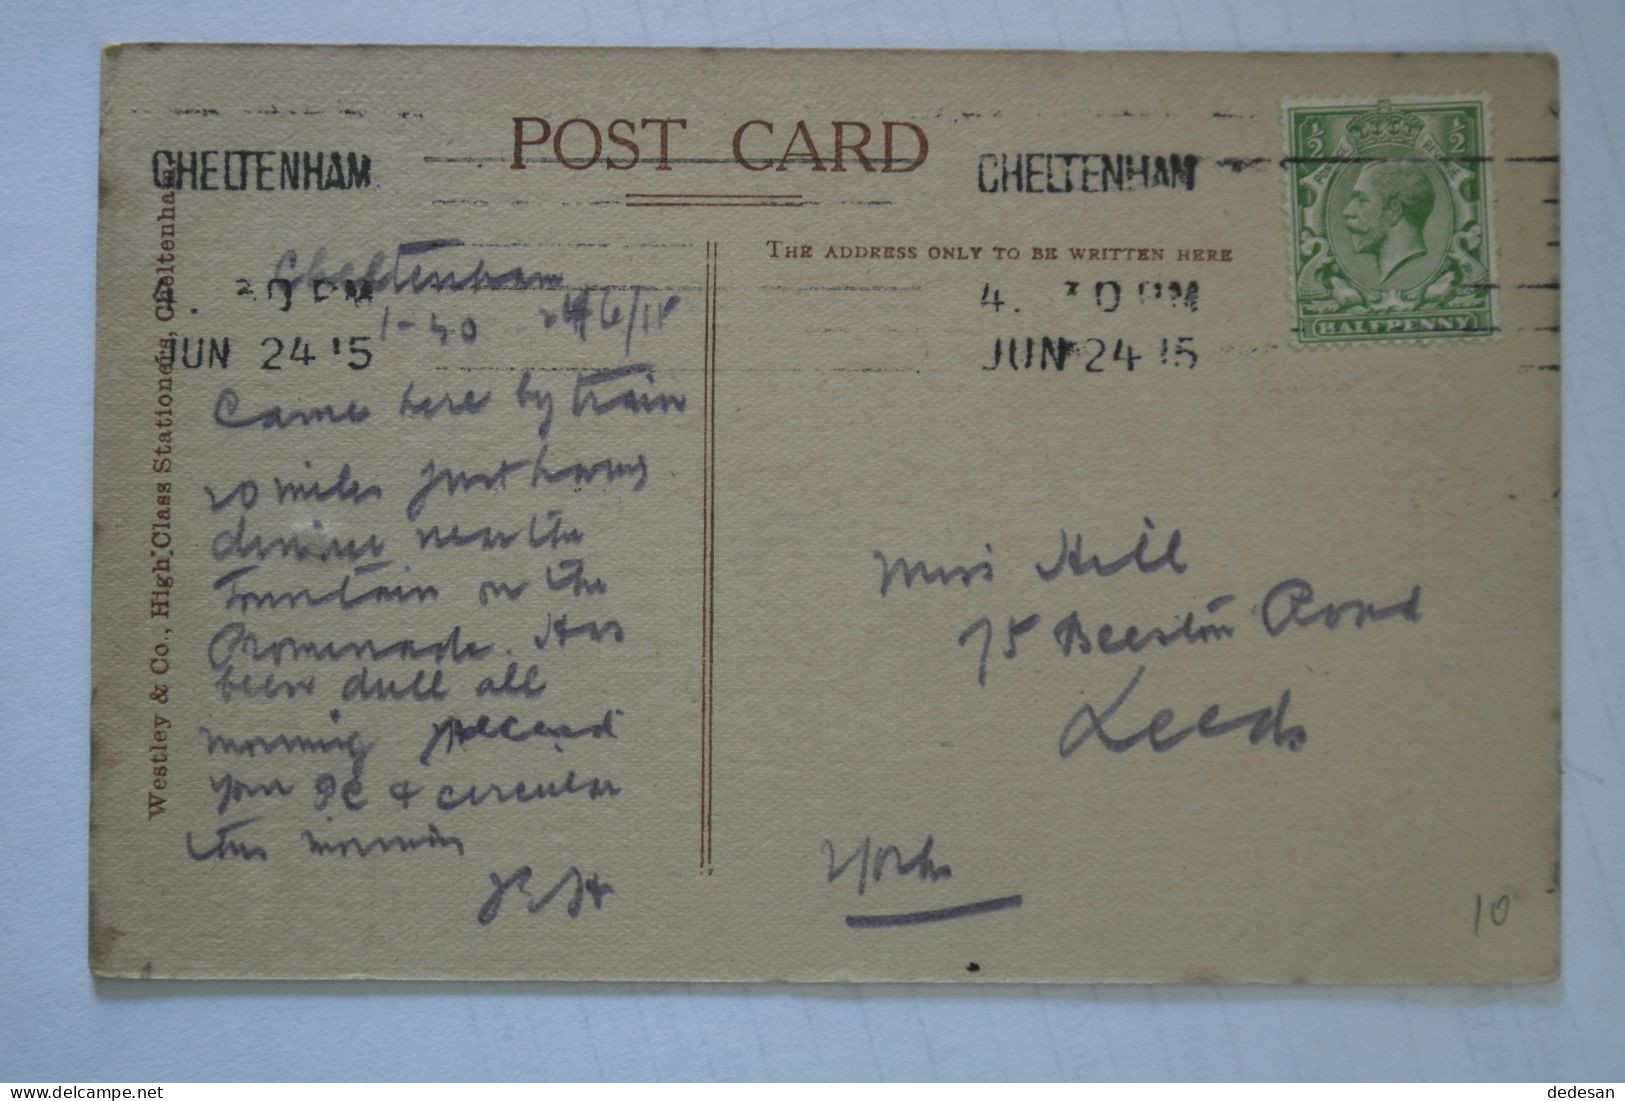 POST CARD
CHELTENHAM
CHELTENHAM
THE ADDRESS ONLY TO BE WRITTEN HERE
4. 30 PM
JUN 24 15
. 30 PM
JUN 24 15
½
½
HALFPENNY
Westley & Co., High Class Stationers, Cheltenham.
Cheltenham
1-40 24/6/15
Came here by train
20 miles just having
dinner near the
Fountain on the
Promenade. Has
been dull all
morning Received
your PC & circular
this morning
Miss Hill
75 Beeston Road
Leeds
Yorks
10
dedesan